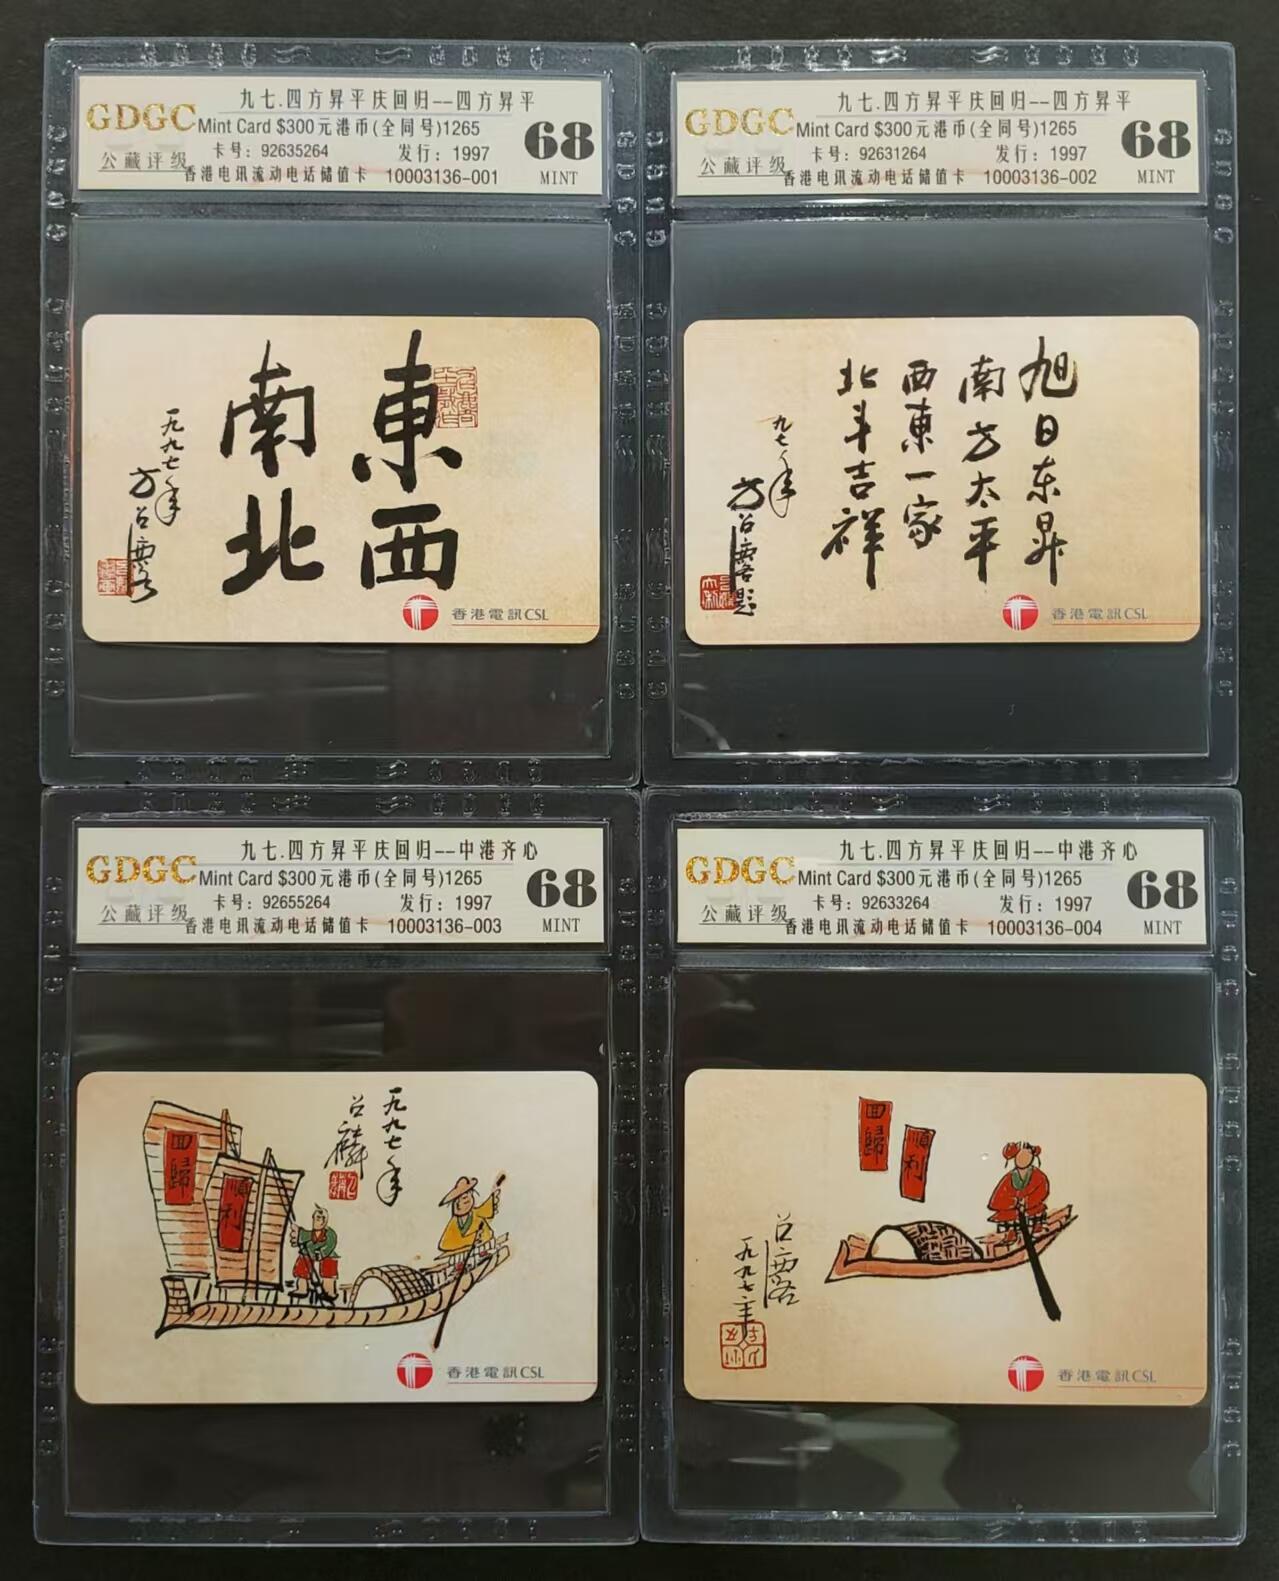 九七.四方昇平庆回归--四方昇平
GDGC
Mint Card $300元港币(全同号)1265
68
卡号：92635264 发行：1997
公藏评级
香港电讯流动电话储值卡 10003136-001
MINT
東西
南北
一九九七年
方召麐
香港電訊CSL
九七.四方昇平庆回归--四方昇平
GDGC
Mint Card $300元港币(全同号)1265
68
卡号：92631264 发行：1997
公藏评级
香港电讯流动电话储值卡 10003136-002
MINT
旭日东昇
南方太平
西東一家
北斗吉祥
九七年
方召麐题
香港電訊CSL
九七.四方昇平庆回归--中港齐心
GDGC
Mint Card $300元港币(全同号)1265
68
卡号：92655264 发行：1997
公藏评级
香港电讯流动电话储值卡 10003136-003
MINT
一九九七年
召麐
回歸
順利
香港電訊CSL
九七.四方昇平庆回归--中港齐心
GDGC
Mint Card $300元港币(全同号)1265
68
卡号：92633264 发行：1997
公藏评级
香港电讯流动电话储值卡 10003136-004
MINT
回歸
順利
召麐
一九九七年
香港電訊CSL